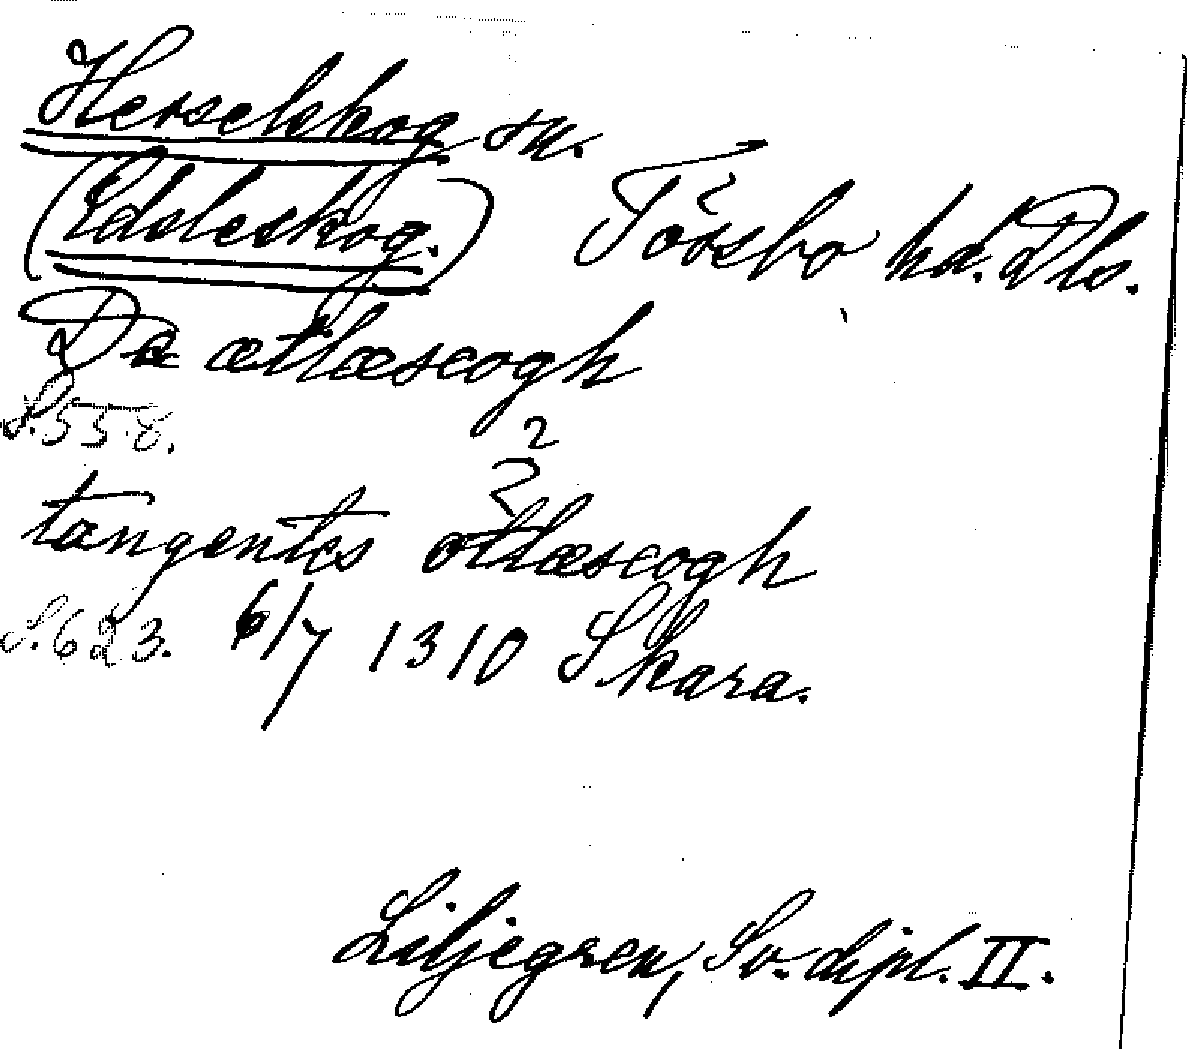 Herselskog sn.
(Edsleskog.) Tössbo hd. Dls.
De ætlæscogh
S. 558.
2
tangentes otlæscogh
S. 623. 6/7 1310 Skara.
Liljegren, Sv. dipl. II.